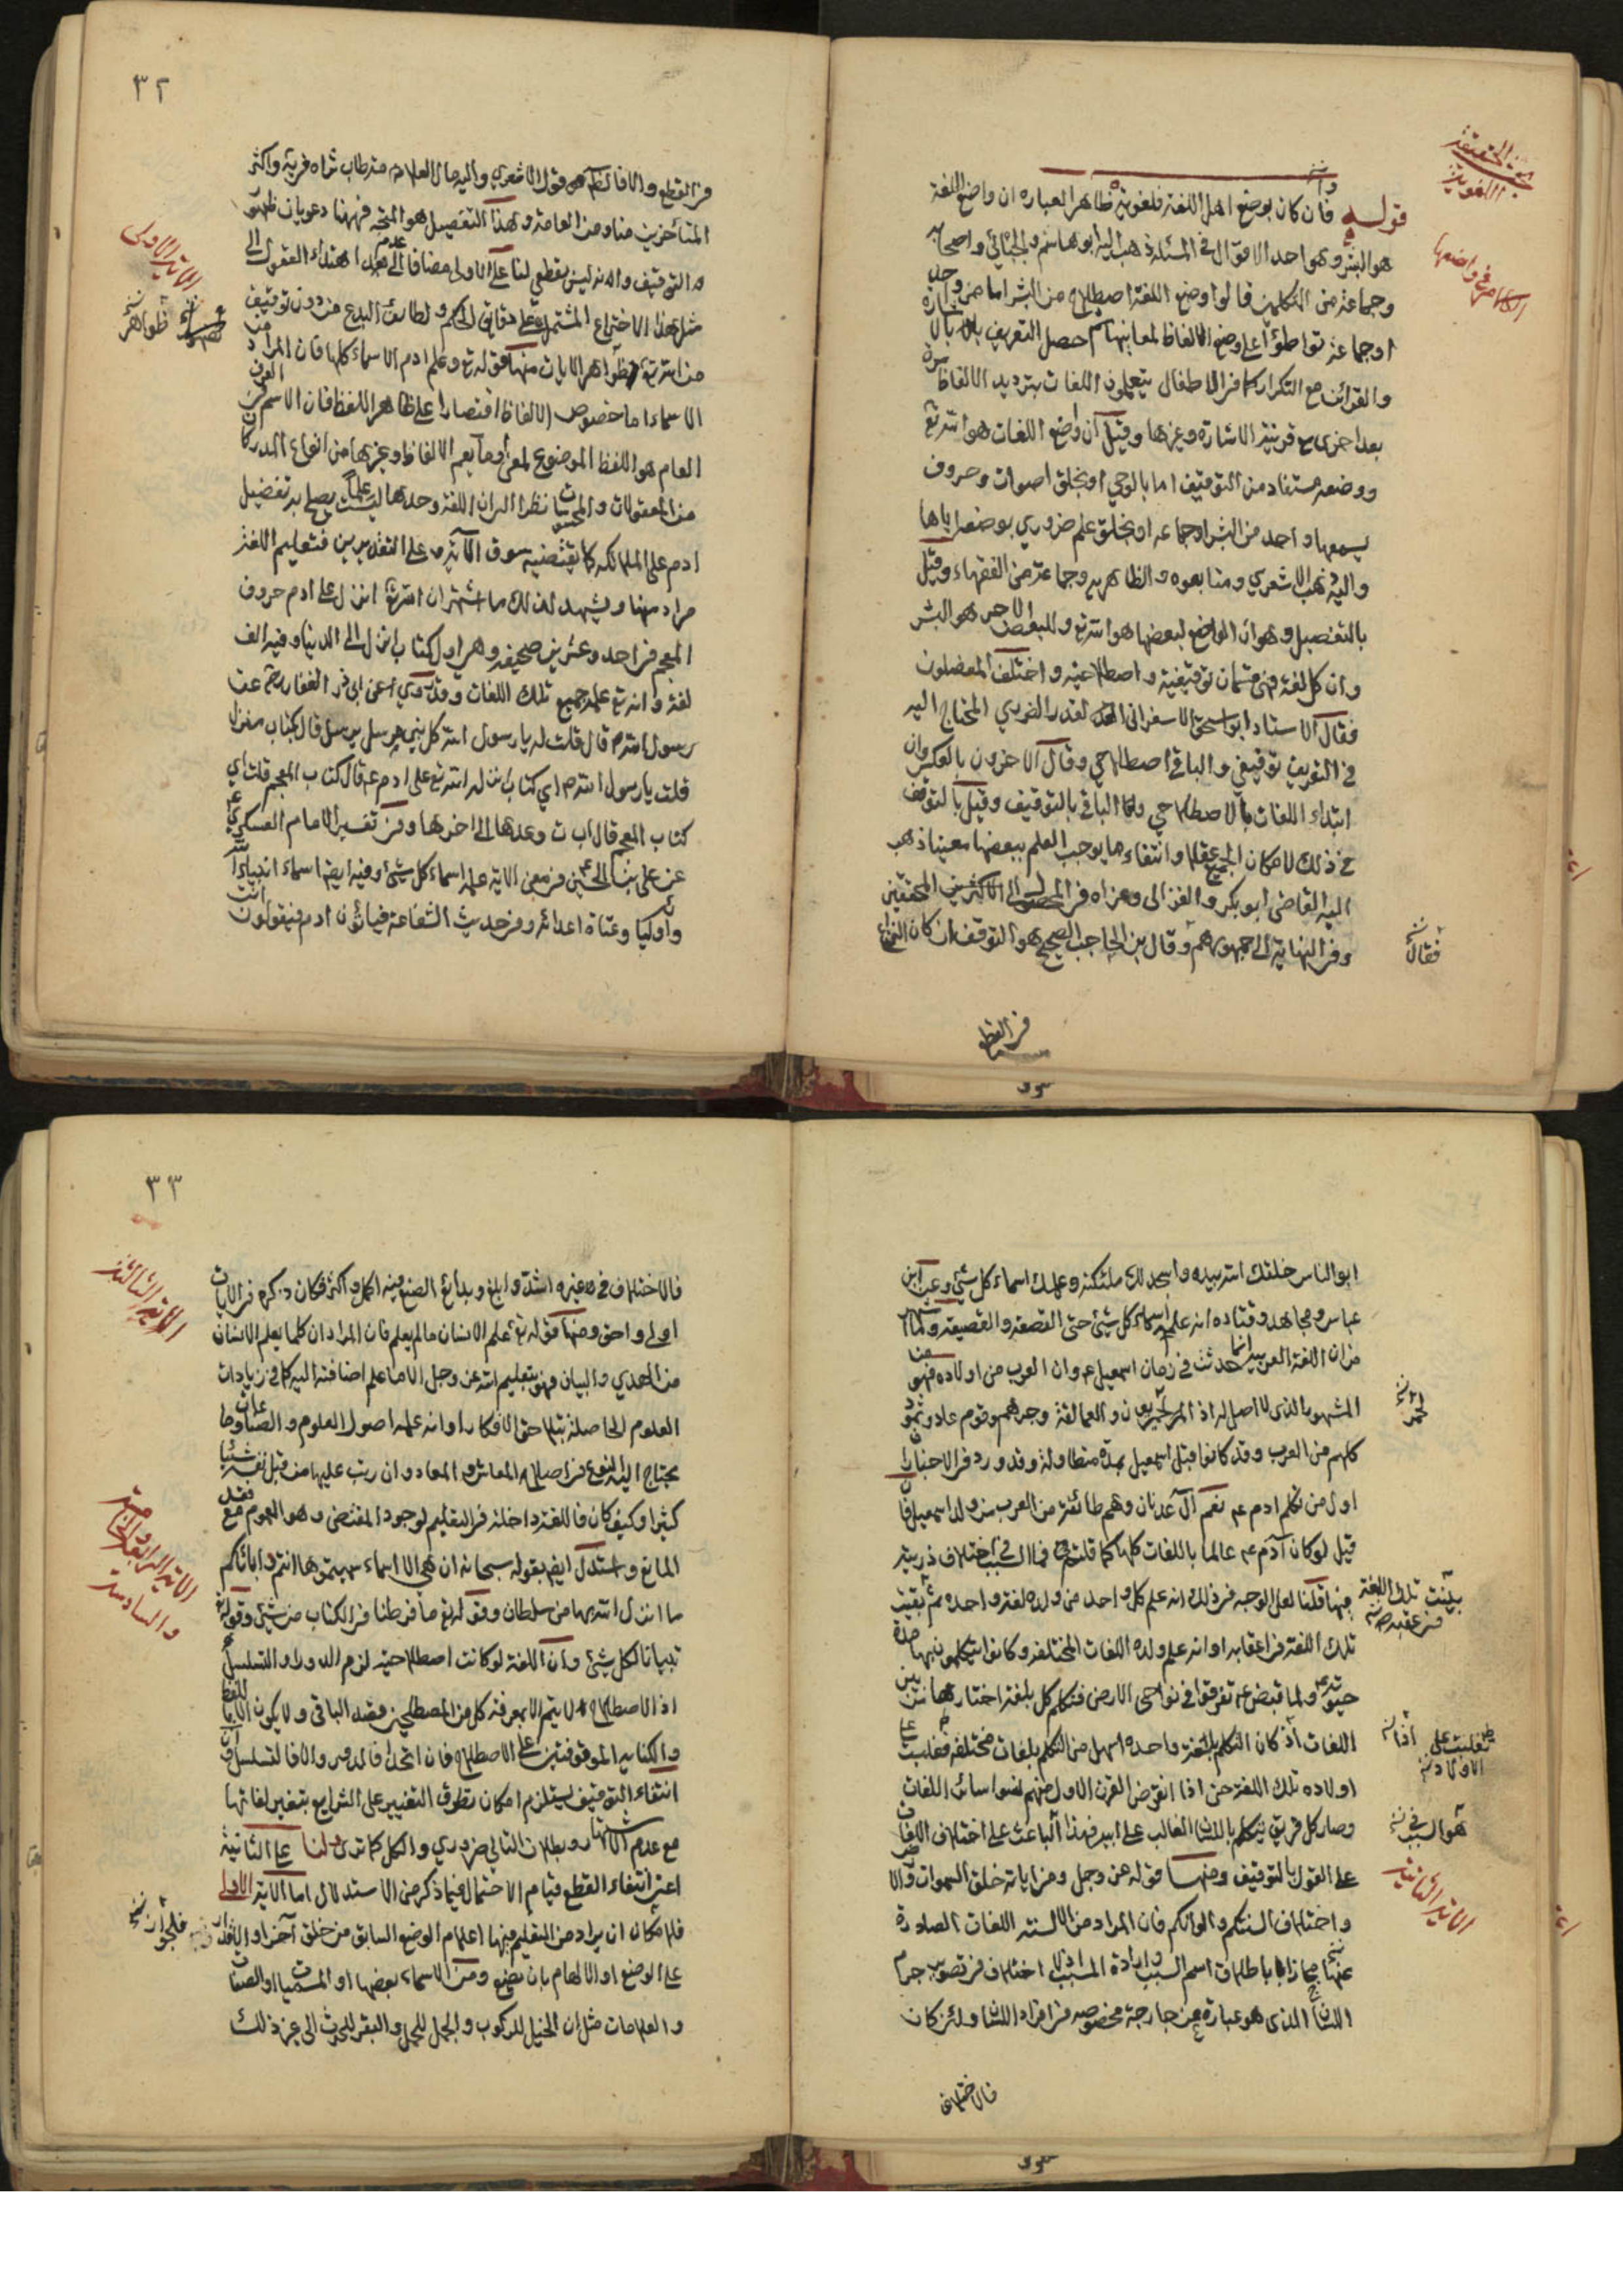 قوله فان كان بوضع اهل اللغة فلغوية ظاهر العباره ان واضع اللغة
هو البشر وهو احد الاقوال في المسئلة ذهب اليه ابو هاشم والجبائي واصحابه
وجماعة من المتكلمين قالوا وضع اللغة اصطلاح من البشر اما من واحد
او جماعة تواطؤا على وضع الالفاظ لمعانيها ثم حصل التعريف بالاشارة
والقرائن مع التكرار كما في الاطفال يتعلمون اللغات بترديد الالفاظ مرة
بعد اخرى مع قرينة الاشارة وغيرها وقيل ان واضع اللغات هو الله تع
ووضعه مستفاد من التوقيف اما بالوحي او بخلق اصوات وحروف
يسمعها واحد من البشر او جماعه او بخلق علم ضروري بوضعه اياها
واليه ذهب الاشعري ومتابعوه والظاهريه وجماعة من الفقهاء وقيل
بالتفصيل وهو ان الواضع لبعضها هو الله تع وللبعض الاخر هو البشر
وان كل لغة فهي قسمان توقيفية واصطلاحيه واختلف المفصلون
فقال الاستاد ابو اسحق الاسفرانى القدر الضروري المحتاج اليه
في التعريف توقيفي والباقي اصطلاحي وقال الاخرون بالعكس وان
ابتداء اللغات بالاصطلاحي واما الباقي بالتوقيف وقيل بالتوقف
في ذلك لامكان الجميع عقلا وانتفاء ما يوجب العلم ببعضها معينا ذهب
اليه القاضى ابو بكر والغزالى وعزاه في المحصول الى الاكثر من المحققين
وفي النهاية الى جمهورهم وقال بن الحاجب الصحيح هو التوقف ان كان النزاع
فقال
في القطع
٣٢
في القطع والا فالظاهر هو قول الاشعري واليه مال العلامه طاب ثراه في يه واكثر
المتأخرين منا ومن العامة وهذا التفصيل هو المتجه فههنا دعويان ظهور
التوقيف وانه ليس بقطعي لنا على الاولى مضافا الى عدم اهتداء العقول الى
مثل هذا الاختراع المشتمل على دقايق الحكم ولطايف البدع من دون توقيف
من الله تع ظواهر الايات منها قوله تع وعلم ادم الاسماء كلها فان المراد من
الاسماء اما خصوص الالفاظ اقتصارا على ظاهر اللفظ فان الاسم في العرف
العام هو اللفظ الموضوع لمعنى او ما يعم الالفاظ وغيرها من انواع المدركات
من المعقولات والمحسوسات نظرا الى ان اللغة وحدها ليست علما يصلح به تفضيل
ادم على الملائكه كما يقتضيه سوق الآية وعلى التقديرين فتعليم اللغة
مراد منها ويشهد لذلك ما اشتهر ان الله تع انزل على ادم حروف
المعجم في احد وعشرين صحيفه وهي اول كتاب انزل الى الدنيا وفيه الف
لغة وانه تع علمه جميع تلك اللغات وقد روي عن ابى ذر الغفاري عن
رسول الله ص قال قلت له يا رسول الله كل نبي مرسل بم يرسل قال بكتاب منزل
قلت يا رسول الله اي كتاب انزله الله تع على ادم ع قال كتاب المعجم قلت اي
كتاب المعجم قال اب ت وعدها الى اخرها وفي تفسير الامام العسكري
عن على بن الحسين في معنى الاية علمه اسماء كل شئ وفيه ايضا اسماء انبياء الله
واوليائه وعتاة اعدائه وفي حديث الشفاعة فيأتون ادم فيقولون انت
الآية الاولى
ظواهر
ابو الناس خلقك الله بيده واسجد لك ملئكته وعلمك اسماء كل شئ وعن ابن
عباس ومجاهد وقتاده انه علمه اسماء كل شئ حتى القصعة والقصيعة
من ان اللغة العربيه انما حدثت في زمان اسمعيل ع وان العرب من اولاده فهو من
المشهور الذى لا اصل له اذ الحميريون والعمالقة وجرهم وقوم عاد وثمود
كلهم من العرب وقد كانوا قبل اسمعيل بمدة متطاولة وقد ورد في الاخبار ان
اول من تكلم ادم ع نعم آل عدنان وهم طائفة من العرب من ولد اسمعيل فان
قيل لو كان آدم ع عالما باللغات كلها كما قلتم فما السبب في اختلاف ذريته
فيها قلنا لعل الوجه في ذلك انه علم كل واحد من ولده لغة واحده ثم بقيت
تلك اللغة في اعقابه او انه علم ولده اللغات المختلفه وكانوا يتكلمون بها مدة
حيوته ولما قبض ع تفرقوا في نواحى الارض فتكلم كل بلغة اختارها من بين
اللغات اذ كان التكلم بلغة واحده اسهل من التكلم بلغات مختلفه فغلبت على
اولاده تلك اللغة حتى اذا انقرض القرن الاول منهم نسوا سائر اللغات
وصار كل فريق يتكلم باللسان الغالب على ابيه فهذا الباعث على اختلاف اللغات
على القول بالتوقيف ومنها قوله عز وجل ومن اياته خلق السموات والارض
واختلاف السنتكم والوانكم فان المراد من الالسنه اللغات الصادرة
عنها مجازا باطلاق اسم السبب وارادة المسبب اذ لا اختلاف في تصوير جرم
اللسان الذى هو عبارة عن جارحة مخصوصه من افراد الانسان ولئن كان
بقيت تلك اللغة في عقبه
هو السبب في
الآية الثانية
فالاختلاف
٣٣
فالاختلاف في غيره اشد وابلغ وبدائع الصنع فيه اكمل واكثر فكان ذكره في الايات
اولى واحق ومنها قوله تع علم الانسان ما لم يعلم فان المراد ان كلما يعلم الانسان
من الهدى والبيان فهو بتعليم الله عز وجل الا ما علم اضافته اليه كما في زيادات
العلوم الحاصلة بتلاحق الافكار او انه علمه اصول العلوم والصناعات وما
يحتاج اليه النوع في اصلاح المعاش والمعاد وان ريب عليها من قبل نفسه شيئا
كثيرا وكيف كان فاللغة داخلة في التعليم لوجود المقتضى وهو العموم مع فقد
المانع واستدل ايضا بقوله سبحانه ان هي الا اسماء سميتموها انتم واباؤكم
ما انزل الله بها من سلطان وقوله تع ما فرطنا في الكتاب من شئ وقوله تع
تبيانا لكل شئ وان اللغة لو كانت اصطلاحية لزم الدور او التسلسل
اذ الاصطلاح لا يتم الا بمعرفة كل من المصطلحين قصد الباقي ولا يكون الا باللفظ
والكتابه الموقوفتين على الاصطلاح فان اتحد فالدور والا فالتسلسل وان
انتفاء التوقيف يستلزم امكان تطرق التغيير على الشرايع بتغير لغاتها
مع عدم الاشتهار وبطلان التالي ضروري والكل كما ترى ولنا على الثانية
اعنى انتفاء القطع قيام الاحتمال فيما ذكر من الاستدلال اما الآية الاولى
فلامكان ان يراد من التعليم فيها اعلام الوضع السابق من خلق آخر او الاقدار
على الوضع او الالهام بان يضع ومن الاسماء بعضها او المسميات او الصفات
والعلامات مثل ان الخيل للركوب والجمل للحمل والبقر للحرث الى غير ذلك
الآية الثالثة
الآية الرابعة والخامسة
والسادسة
فلجواز